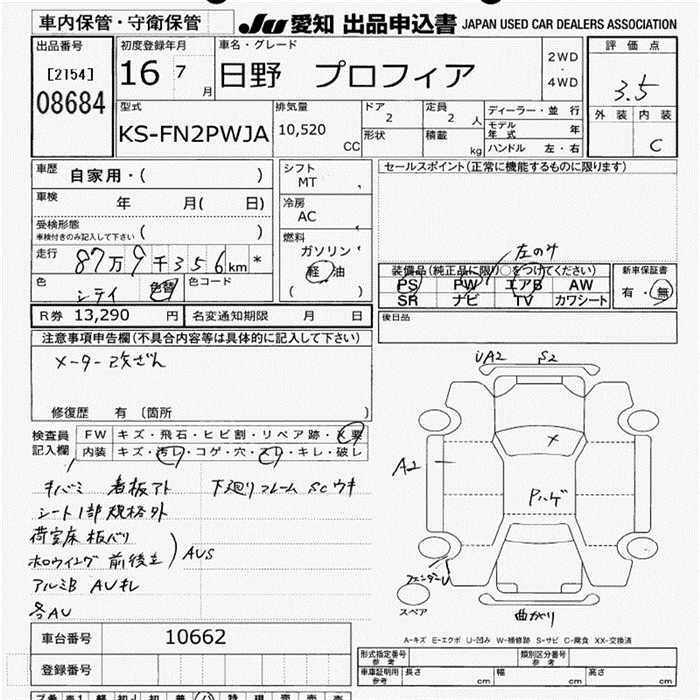 車内保管・守衛保管
JU 愛知 出品申込書 JAPAN USED CAR DEALERS ASSOCIATION
出品番号
[2154]
08684
初度登録年月
16 7 月
車名・グレード
日野 プロフィア
2WD
・
4WD
評価点
3.5
外装 内装
C
型式
KS-FN2PWJA
排気量
10,520 CC
ドア
2
形状
定員
2 人
積載
kg
ディーラー・並行
モデル年式 年
ハンドル 左・右
車歴 自家用・( )
車検 年 月( 日)
受検形態
車検付きのみ記入して下さい ( )
走行 87万9千356km *
色 シテイ 色替 色コード
シフト
MT
冷房
AC
燃料
ガソリン
軽・油
( )
セールスポイント(正常に機能するものに限ります)
左のみ
装備品(純正品に限り○をつけてください)
PS PW エアB AW
SR ナビ TV カワシート
新車保証書
有・無
R券 13,290 円 名変通知期限 月 日
後日品
注意事項申告欄(不具合内容等は具体的に記入して下さい)
メーター改ざん
修復歴 有 〔箇所 〕
検査員
記入欄
FW キズ・飛石・ヒビ割・リペア跡・X要
内装 キズ・汚レ・コゲ・穴・スレ・キレ・破レ
キバミ 看板アト 下廻りフレーム SCウキ
シート1部規格外
荷室床 板バリ
ホロウイング 前後左 AUS
アルミB AUキレ
各AU
車台番号 10662
登録番号
UA2 S2
A2
X
Pハゲ
フェンダーU
スペア
曲がり
A-キズ E-エクボ U-凹み W-補修跡 S-サビ C-腐食 XX-交換済
型式指定番号
参考
類別区分番号
参考
車庫証明用
参考
長さ cm 幅 cm 高さ cm